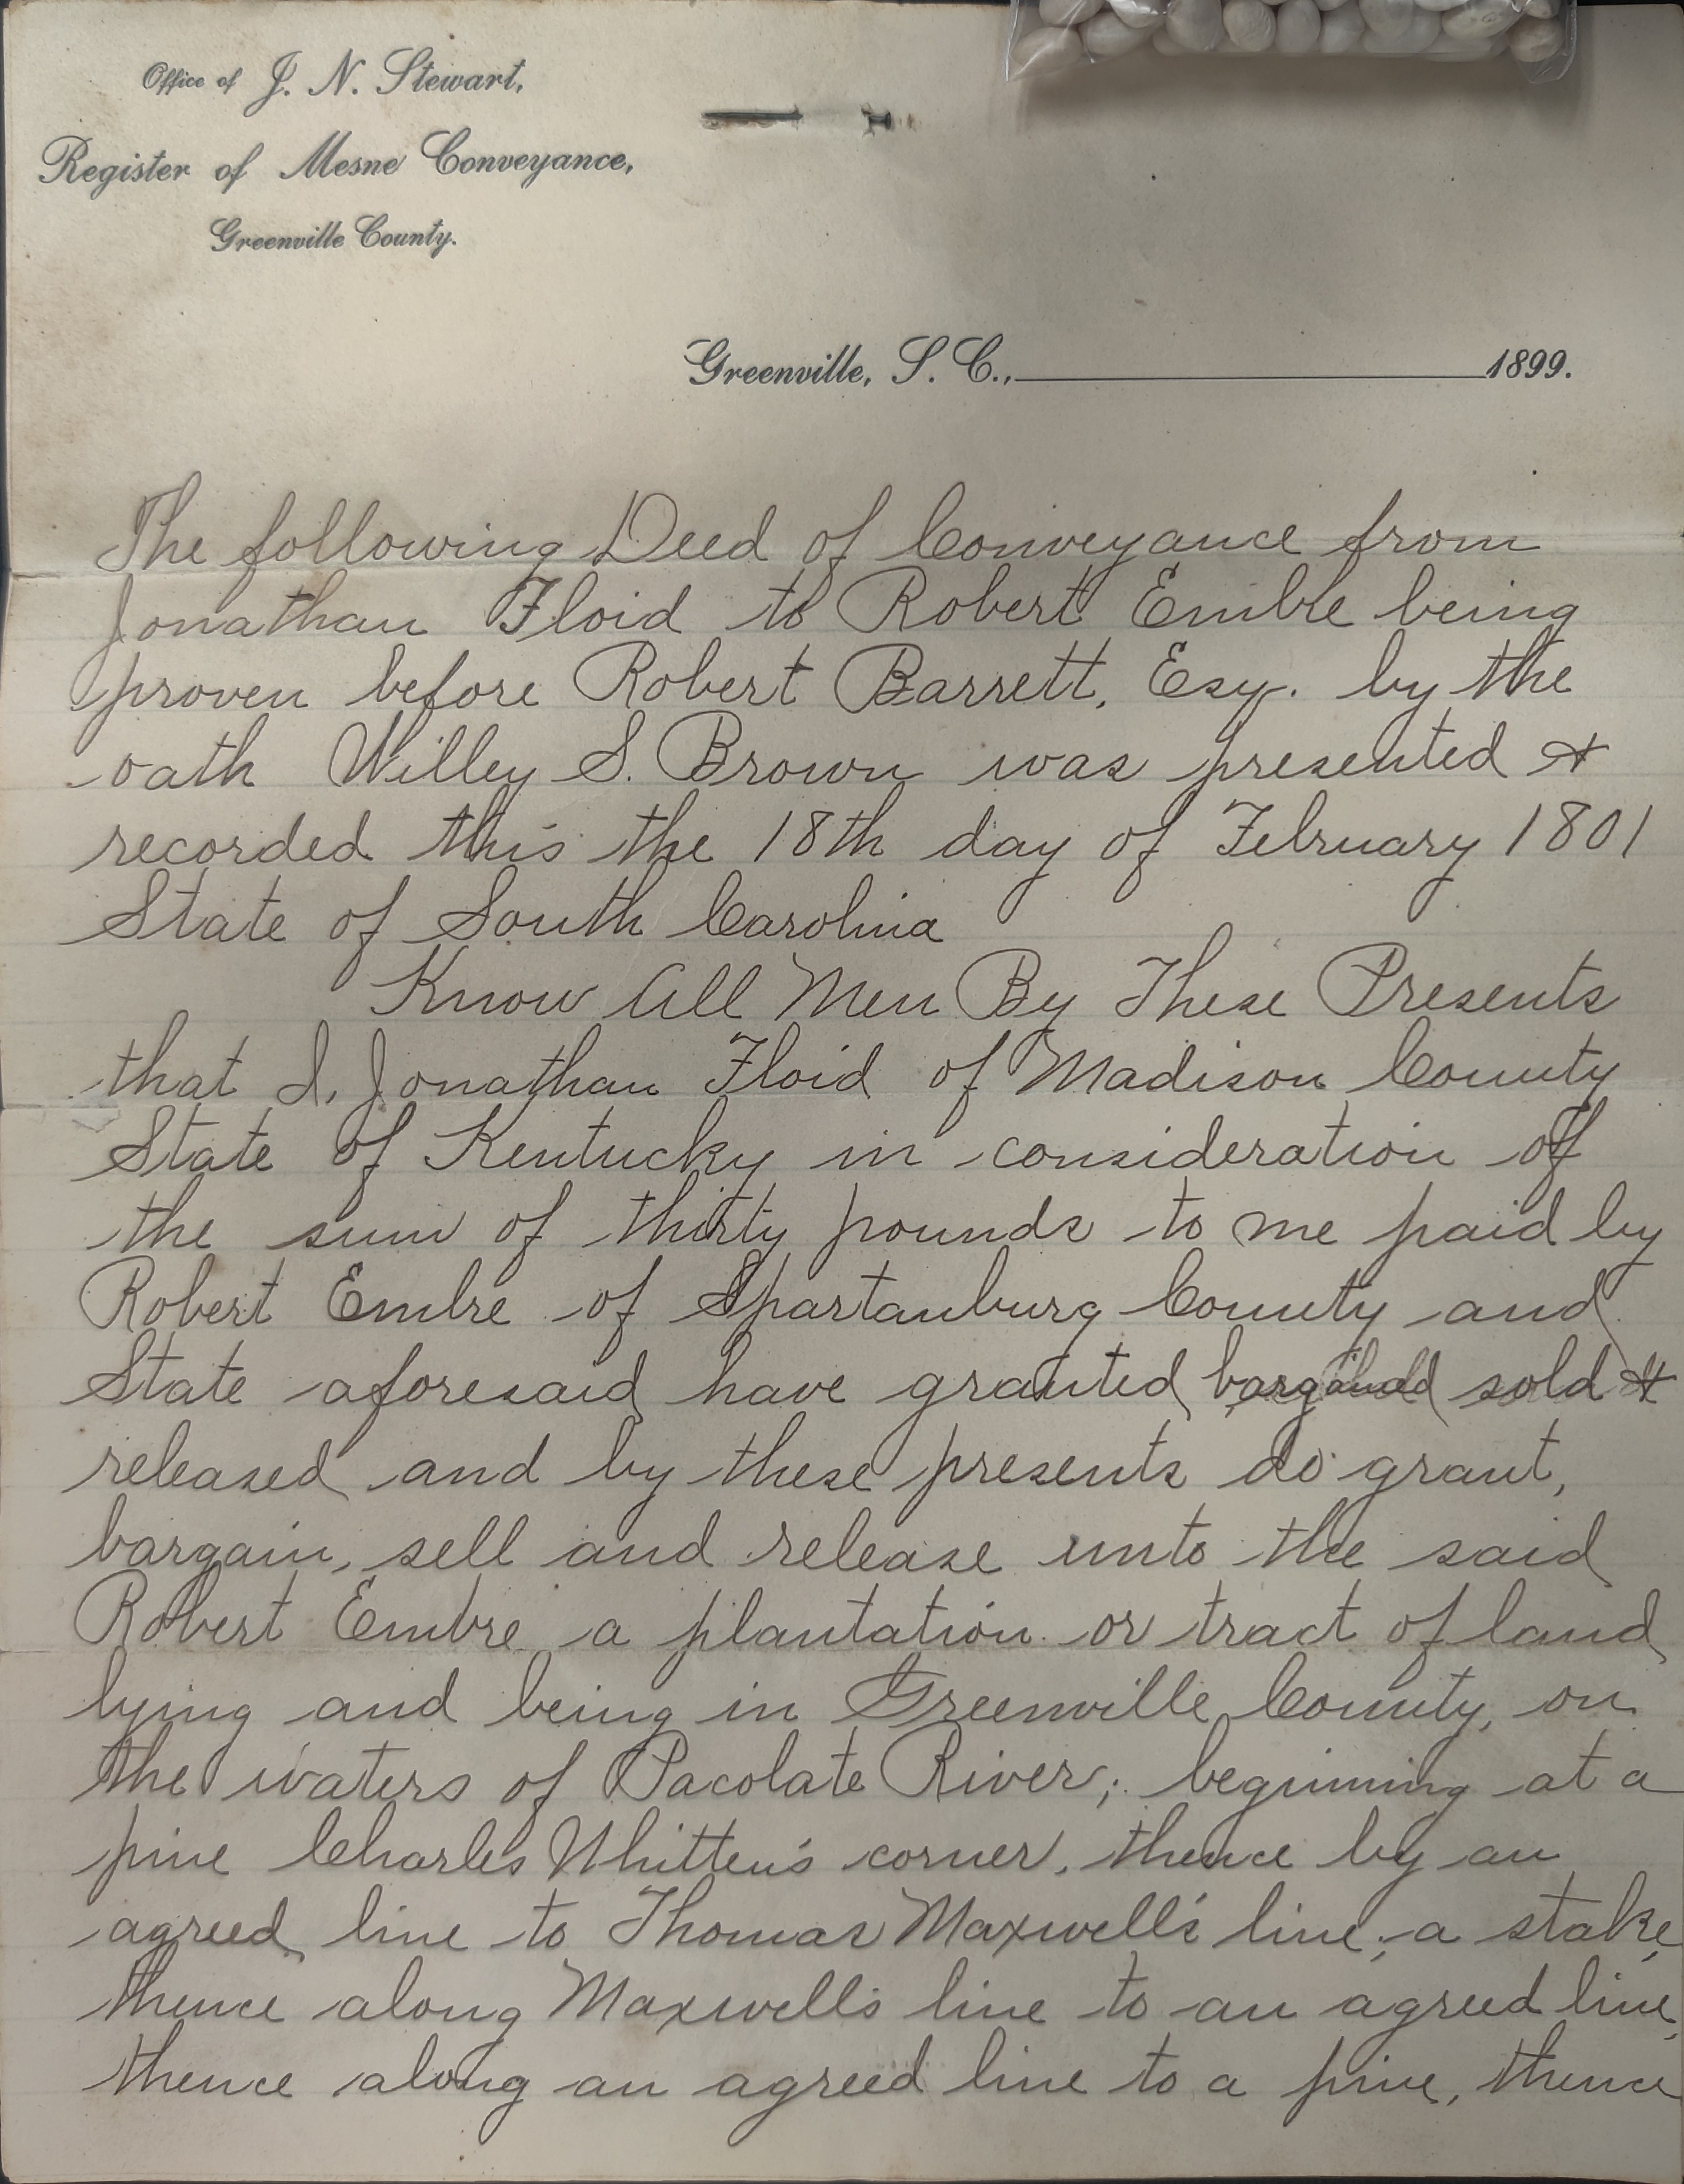 Office of J. N. Stewart,
Register of Mesne Conveyance,
Greenville County.
Greenville, S. C., 1899.
The following Deed of Conveyance from
Jonathan Floid to Robert Embre being
proven before Robert Barrett, Esq. by the
oath Willey S. Brown was presented &
recorded this the 18th day of February 1801
State of South Carolina
Know All Men By These Presents
that I, Jonathan Floid of Madison County
State of Kentucky in consideration of
the sum of thirty pounds to me paid by
Robert Embre of Spartanburg County and
State aforesaid have granted bargained sold &
released and by these presents do grant,
bargain, sell and release unto the said
Robert Embre a plantation or tract of land
lying and being in Greenville County, on
the waters of Pacolate River; beginning at a
pine Charles Whitten's corner, thence by an
agreed line to Thomas Maxwell's line, a stake,
thence along Maxwell's line to an agreed line,
thence along an agreed line to a pine, thence